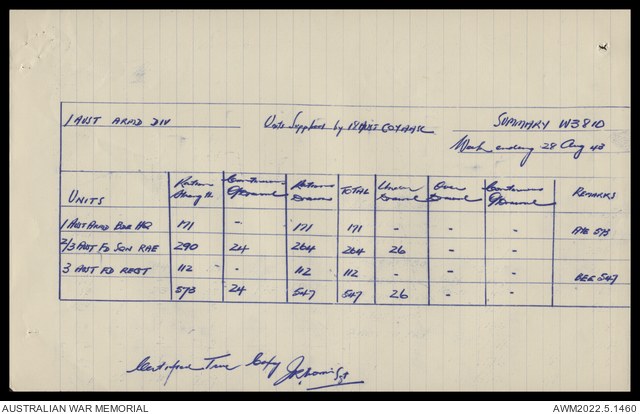 1 AUST ARMD DIV Units Supplied by 18 AUST COY AASC SUMMARY W3810
Week ending 28 Aug 43
UNITS Rations Strength Rations Drawn TOTAL Under Drawn Over Drawn REMARKS
1 AUST ARMD BDE HQ 171 - 171 171 - - - AVE 573
2/3 AUST FD SQN RAE 290 24 264 264 26 - -
3 AUST FD REGT 112 - 112 112 - - - DEC 547
573 24 547 547 26 - -
Certified True Copy Sgt
AUSTRALIAN WAR MEMORIAL AWM2022.5.1460